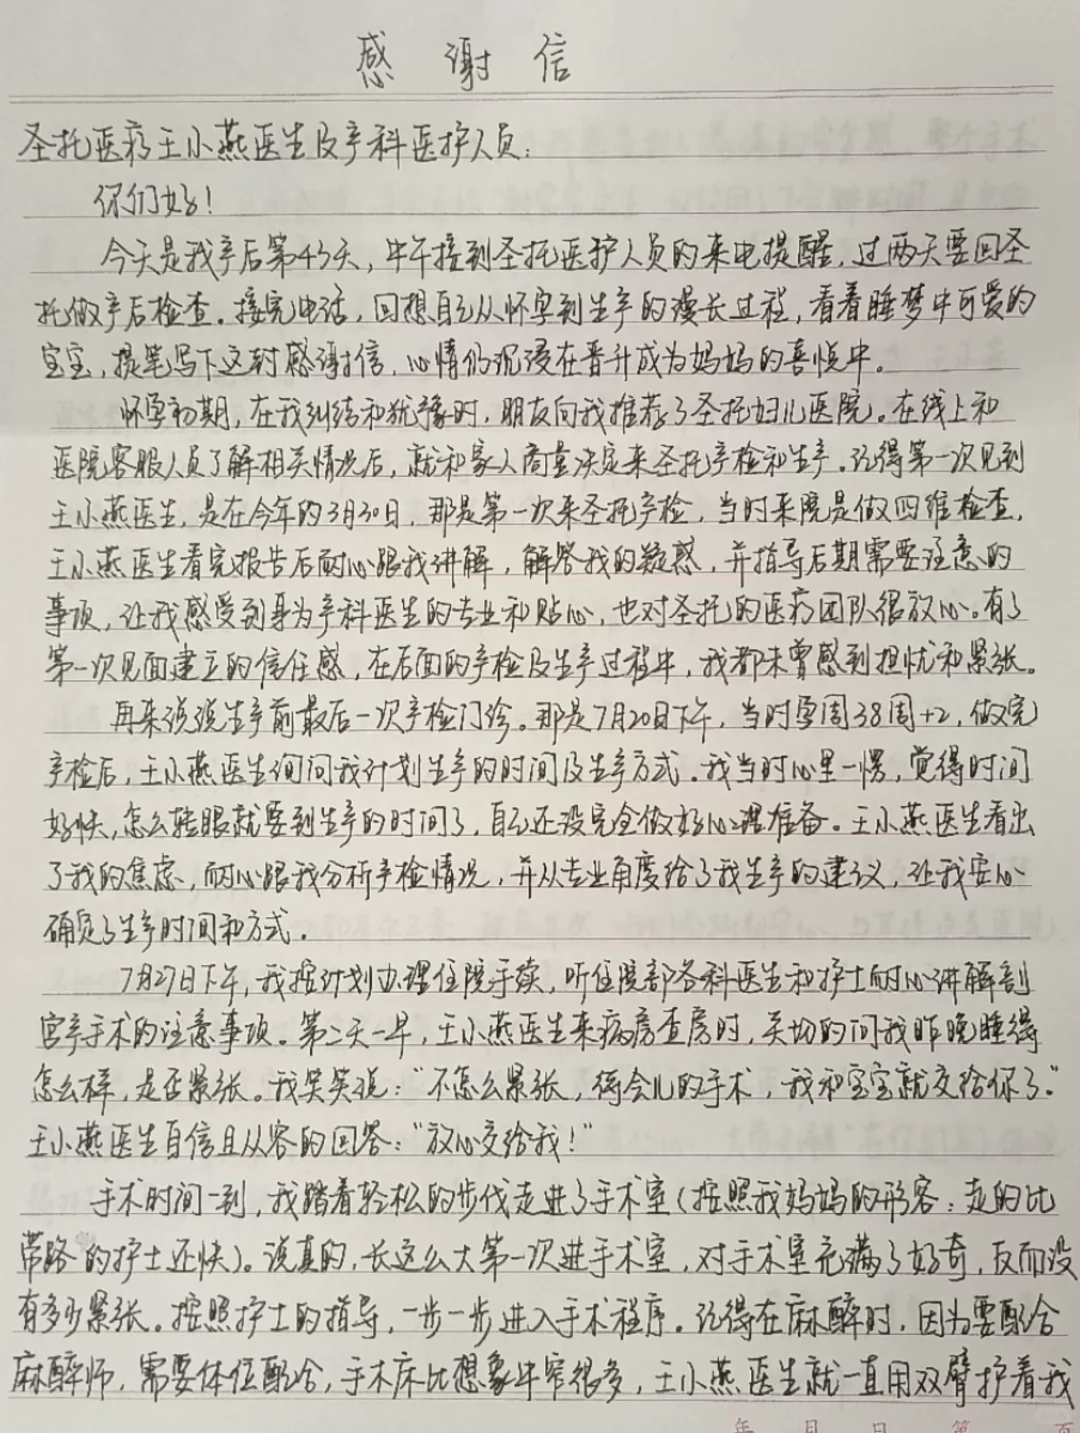 感谢信
圣托医疗王小燕医生及产科医护人员：
你们好！
今天是我产后第43天，中午接到圣托医护人员的来电提醒，过两天要回圣
托做产后检查。接完电话，回想自己从怀孕到生产的漫长过程，看着睡梦中可爱的
宝宝，提笔写下这封感谢信，心情仍沉浸在晋升成为妈妈的喜悦中。
怀孕初期，在我纠结和犹豫时，朋友向我推荐了圣托妇儿医院。在线上和
医院客服人员了解相关情况后，就和家人商量决定来圣托产检和生产。记得第一次见到
王小燕医生，是在今年的3月30日，那是第一次来圣托产检，当时来院是做四维检查，
王小燕医生看完报告后耐心跟我讲解，解答我的疑惑，并指导后期需要注意的
事项，让我感受到身为产科医生的专业和贴心，也对圣托的医疗团队很放心。有了
第一次见面建立的信任感，在后面的产检及生产过程中，我都未曾感到担忧和紧张。
再来说说生产前最后一次产检门诊。那是7月20日下午，当时孕周38周+2，做完
产检后，王小燕医生询问我计划生产的时间及生产方式。我当时心里一愣，觉得时间
好快，怎么转眼就要到生产的时间了，自己还没完全做好心理准备。王小燕医生看出
了我的焦虑，耐心跟我分析产检情况，并从专业角度给了我生产的建议，让我安心
确定了生产时间和方式。
7月27日下午，我按计划办理住院手续，听住院部各科医生和护士耐心讲解剖
宫产手术的注意事项。第二天一早，王小燕医生来病房查房时，关切的问我昨晚睡得
怎么样，是否紧张。我笑笑说：“不怎么紧张，待会儿的手术，我和宝宝就交给你了。”
王小燕医生自信且从容的回答：“放心交给我！”
手术时间一到，我踏着轻松的步伐走进了手术室（按照我妈妈的形容：走的比
带路的护士还快）。说真的，长这么大第一次进手术室，对手术室充满了好奇，反而没
有多少紧张。按照护士的指导，一步一步进入手术程序。记得在麻醉时，因为要配合
麻醉师，需要体位配合，手术床比想象中窄很多，王小燕医生就一直用双臂护着我
年 月 日 第 页